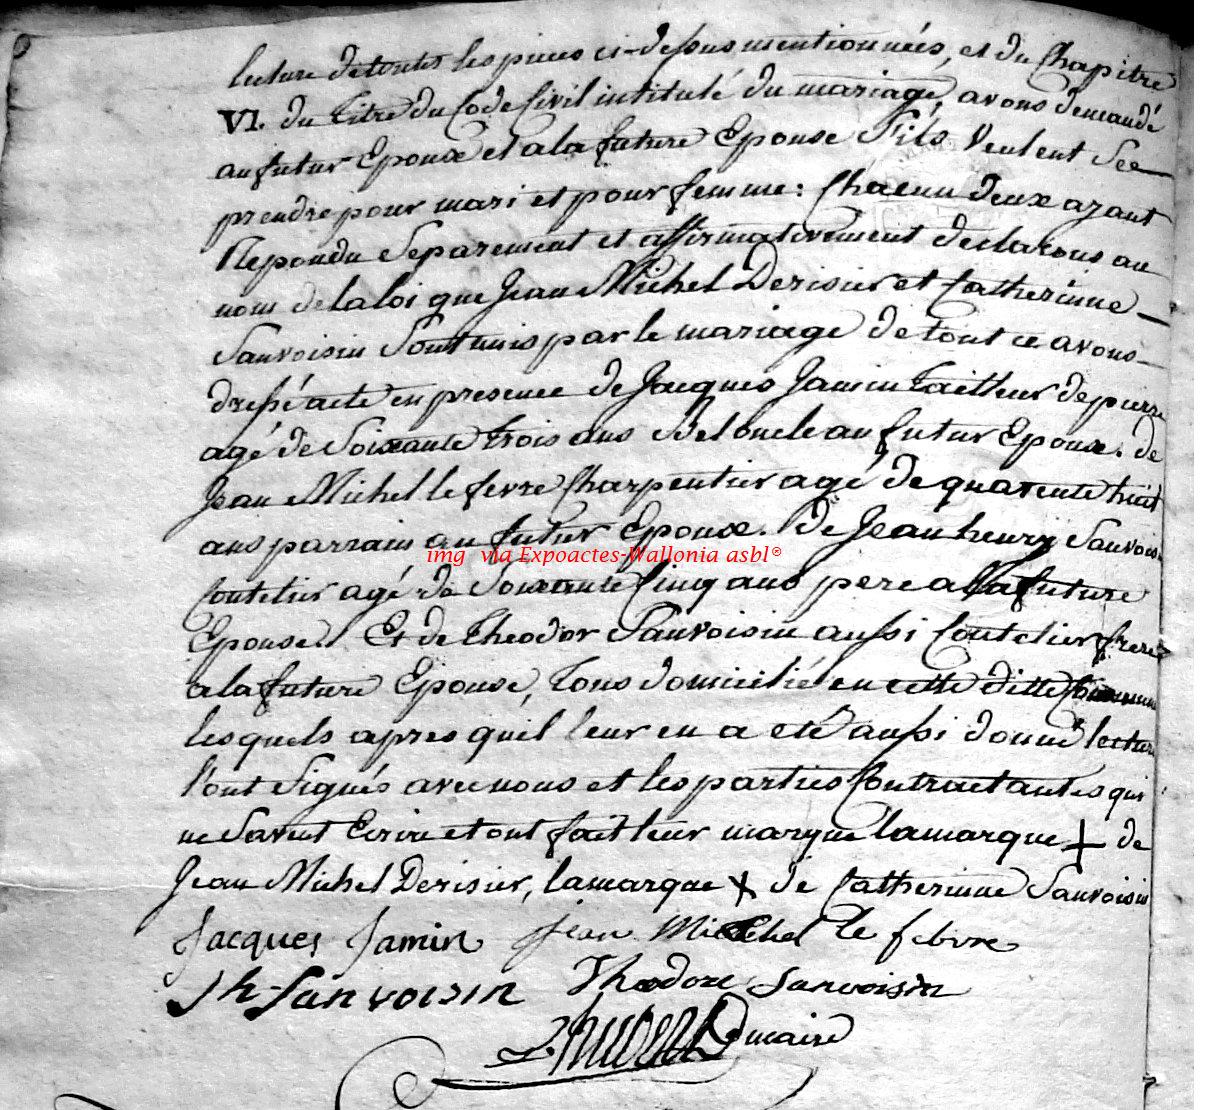 lecture de toutes les pieces ci-dessus mentionnées, et du Chapitre
VI. du titre du Code Civil intitulé du mariage, avons demandé
au futur Epoux et a la future Epouse s'ils veulent see
prendre pour mari et pour femme: Chacun deux ayant
Repondu Separement et affirmativement declarons au
nom de la loi que Jean Michel Derisier et Catherinne
Sanvoisin Sont unis par le mariage de tout ce avons
dressé acte en presence de Jacques Jamin tailleur de pierre
agé de Soixante trois ans Bel oncle au futur Epoux. de
Jean Michel le fevre Charpentier agé de quarente huit
ans parrain au futur Epoux. de Jean henry Sanvois.
img via Expoactes-Wallonia asbl®
Coutelier agé de Soixante Cinq ans pere a la future
Epouse. Et de Theodor Sanvoisin aussi Coutelier frere
a la future Epouse, tous domicilié en cette ditte
lesquels apres quil leur en a eté aussi donné lecture
l'ont Signés avec nous et les parties Contractantes qui
ne Savent Ecrire et ont fait leur marque la marque + de
Jean Michel Derisier, la marque + de Catherinne Sanvoisin
Jacques Jamin Jean Michel le febvre
J h Sanvoisin Theodore Sanvoisin
maire